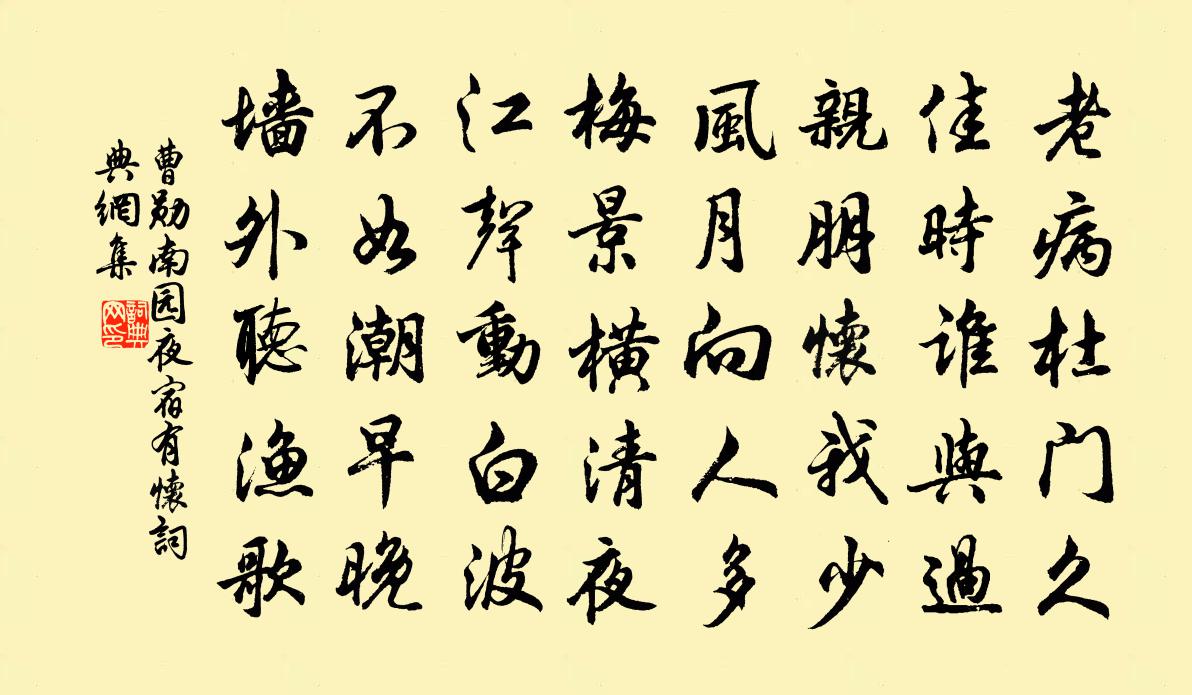 老病杜门久
佳時誰與過
親朋懷我少
風月向人多
梅景橫清夜
江聲動白波
不如潮早晚
墙外聽漁歌
曹勛南园夜宿有懷詞
典網集
詞典
网印